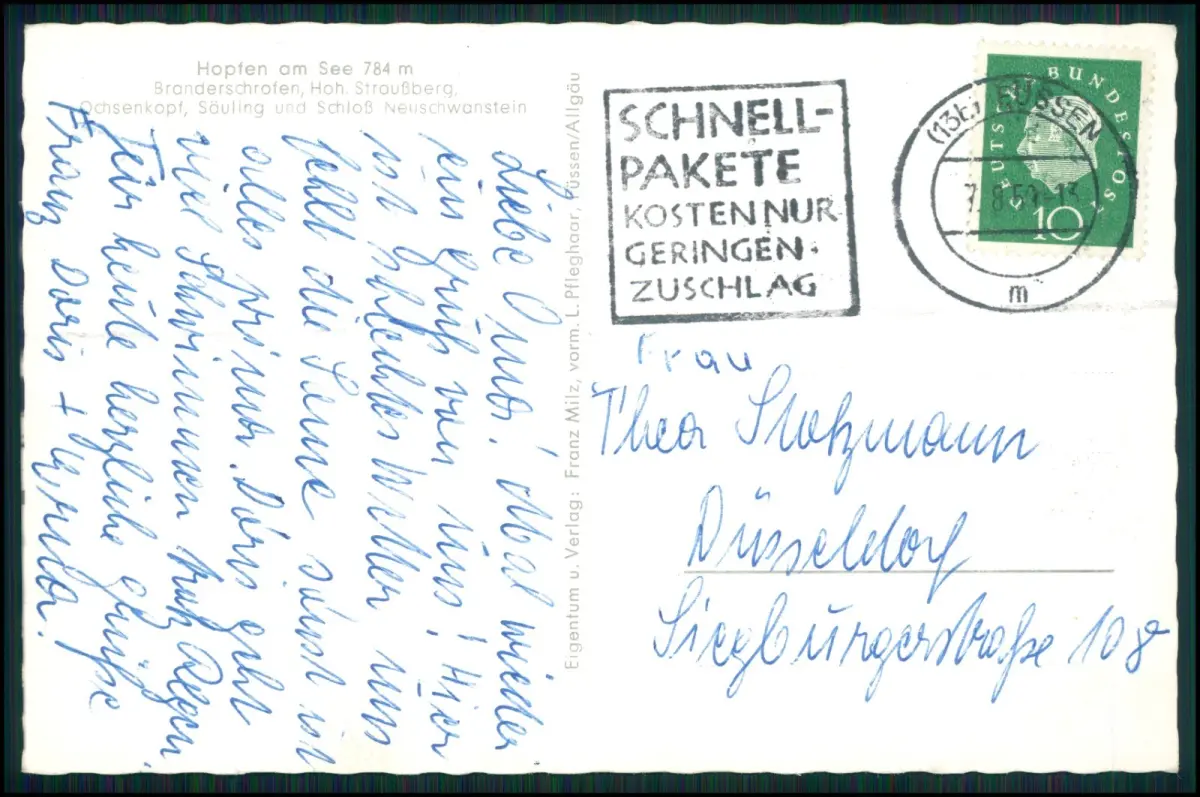 Hopfen am See 784 m
Branderschrofen, Hoh. Straußberg,
Ochsenkopf, Säuling und Schloß Neuschwanstein
Liebe Oma! Mal wieder
ein Gruß von uns! Hier
ist schlechtes Wetter uns
fehlt die Sonne, sonst ist
alles prima. Doris geht
viel Schwimmen trotz Regen.
Für heute herzliche Grüße
Franz Doris + Gerda!
Eigentum u. Verlag: Franz Milz, vorm. L. Pfleghaar, Füssen/Allgäu
SCHNELL-
PAKETE
KOSTEN NUR
GERINGEN
ZUSCHLAG
(13b) FÜSSEN
7.8.59-13
m
DEUTSCHE BUNDESPOST
10
Frau
Thea Stotzmann
Düsseldorf
Siegburgerstraße 108